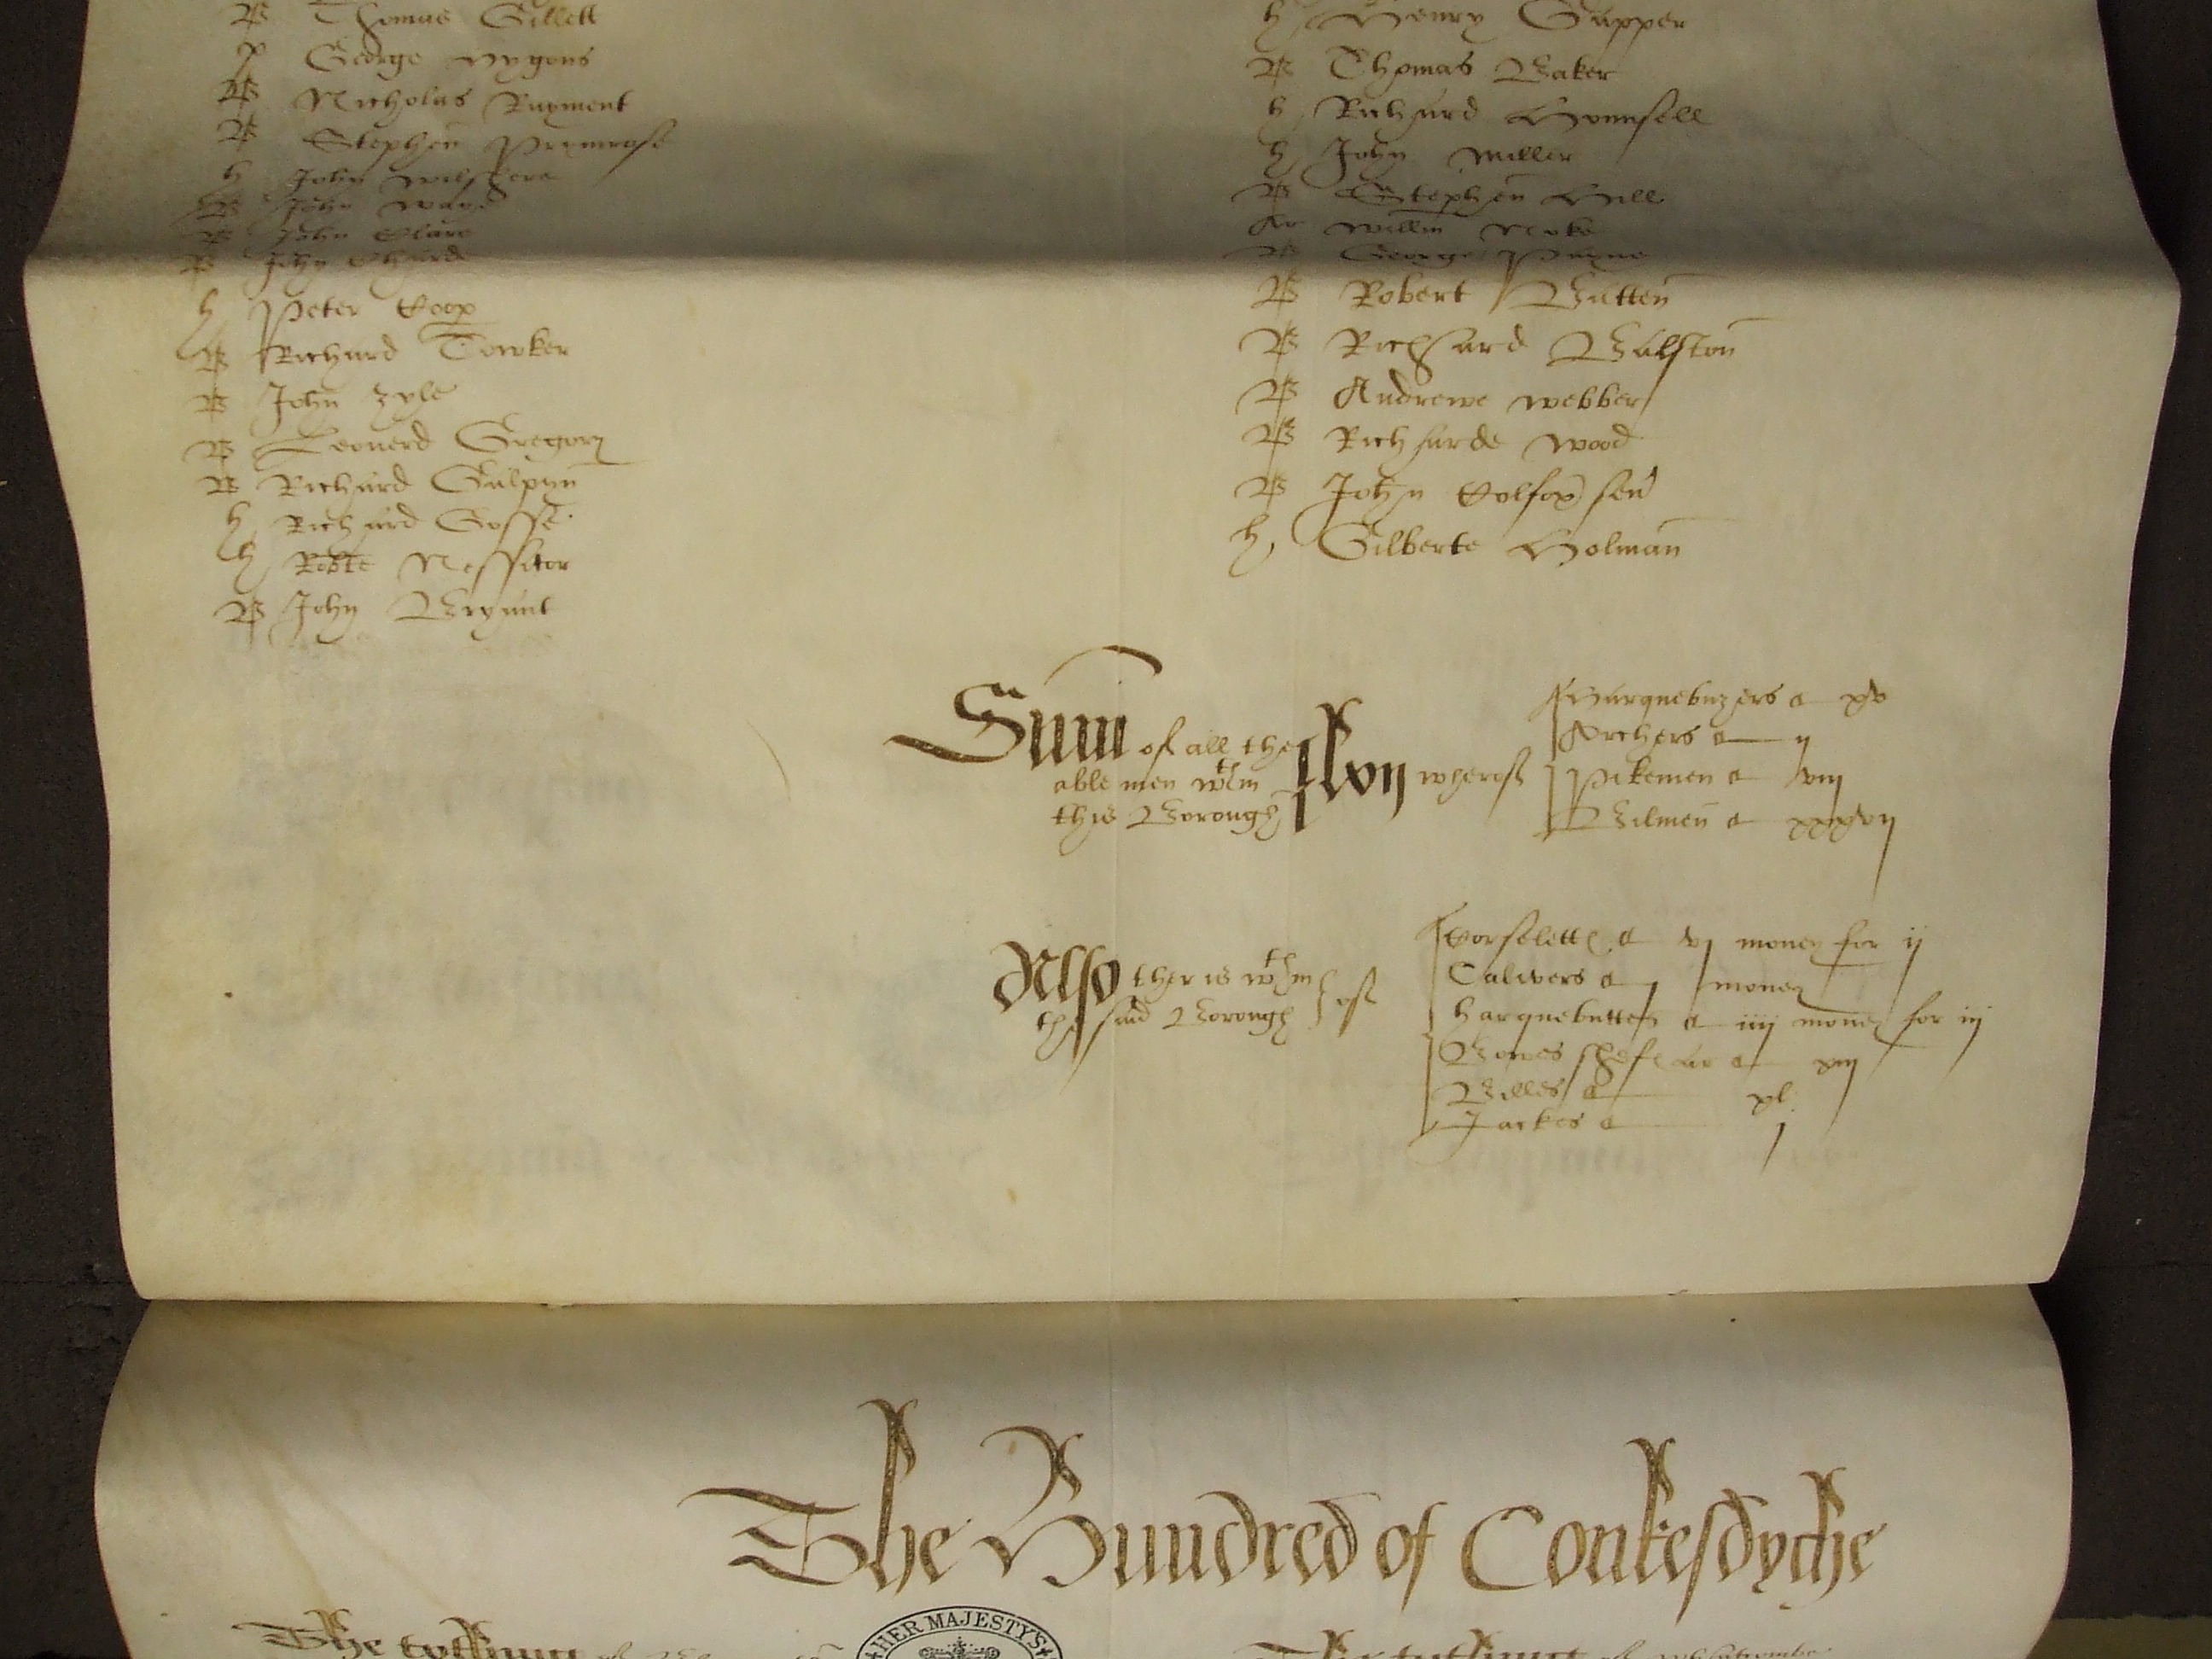 B Thomas Gillett
p George Nygons
B Nicholas Rayment
B Stephen Prymrose
h John Wilshere
B John Wayd
B John Clare
B John
h Peter Coop
B Richard Towker
B John Zyle
B Leonerd Gregory
B Richard Galpyn
h Richard Gosse
h Robte Nossiter
B John Bryant
h Henry Gapper
B Thomas Baker
h Richard Hounsell
h John Miller
B Stephen Hill
Ar Willm Moke
B George Payne
B Robert Batten
B Richard Balston
B Andrewe Webber
B Richarde Wood
B John Colfox sen
h Gilberte Holman
Sum of all the
able men wthin
this Borough
lxvij wherof
Harquebuzers xv
Archers ij
Pikemen viij
Bilmen xxxvij
Also ther is wthin
the said Borough
of
Corselett vj money for ij
Calivers j money
harquebuttes iiij money for iij
Bowes shefe Ar xiij
Billes xl
Jackes j
The Hundred of Conkesdyche
The tothing of
The tothing of Whitcombe
HER MAJESTY'S